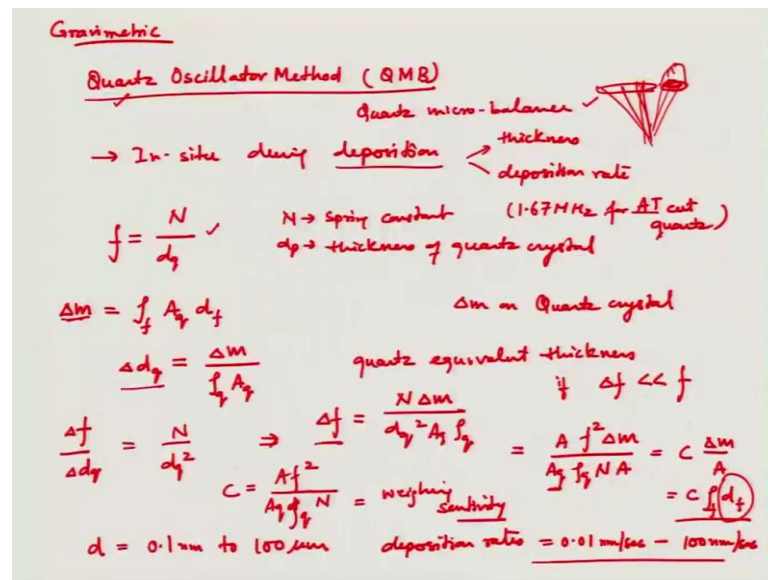 Gravimetric
Quartz Oscillator Method (QMB)
Quartz micro-balance
→ In-situ during deposition
thickness
deposition rate
f = N / d_q
N → spring constant (1.67 MHz for AT cut quartz)
d_q → thickness of quartz crystal
Δm = ρ_f A_q d_f
Δm on Quartz crystal
Δd_q = Δm / ρ_q A_q
quartz equivalent thickness
if Δf << f
Δf / Δd_q = N / d_q² ⇒ Δf = N Δm / d_q² A_q ρ_q = A f² Δm / A_q ρ_q N A = C Δm / A
C = A f² / A_q ρ_q N = weighing sensitivity
= C ρ_f d_f
d = 0.1 nm to 100 μm deposition rates = 0.01 nm/sec - 100 nm/sec